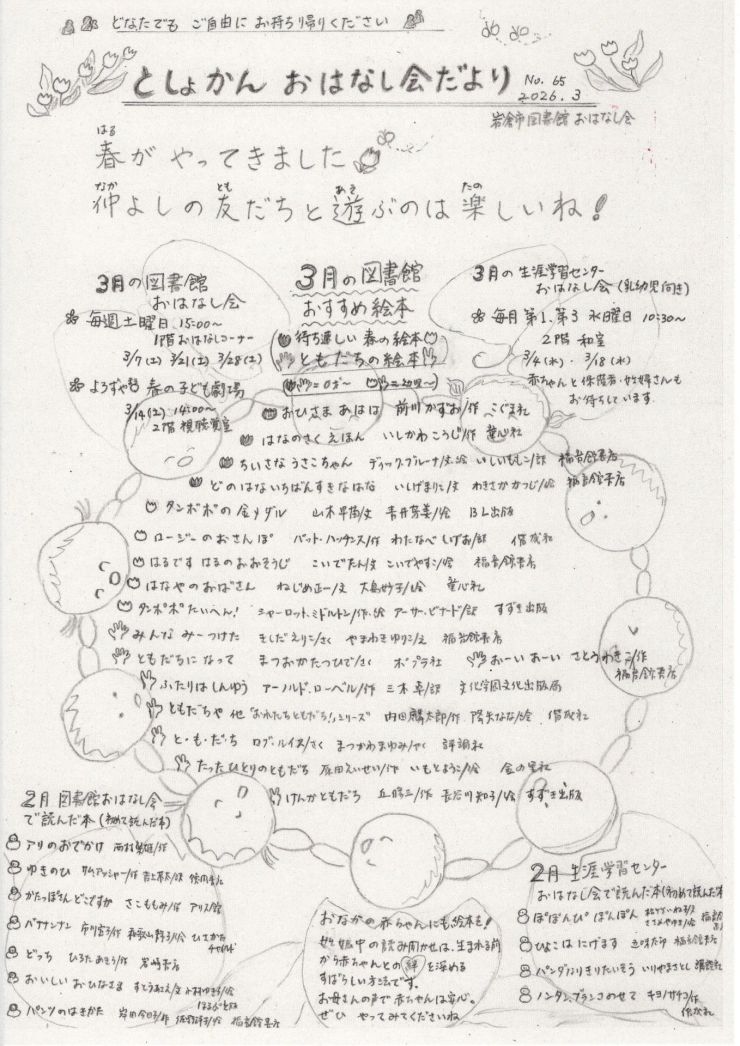 どなたでも ご自由に お持ち帰りください
としょかん おはなし会だより No.65
2026.3
岩倉市図書館 おはなし会
春がやってきました
はる
仲よしの友だちと遊ぶのは楽しいね!
なか とも あそ たの
3月の図書館
おはなし会
毎週土曜日 15:00~
1階おはなしコーナー
3/7(土) 3/21(土) 3/28(土)
よろずや 春の子ども劇場
3/14(土) 14:00~
2階 視聴覚室
3月の図書館
おすすめ絵本
待ち遠しい 春の絵本
ともだちの絵本
=0才~ =2.3才~
3月の生涯学習センター
おはなし会(乳幼児向き)
毎月 第1.第3 水曜日 10:30~
2階 和室
3/4(水)・3/18(水)
赤ちゃんと保護者・妊婦さんも
お待ちしています.
おひさま あはは 前川かずお/作 こぐま社
はなのさくえほん いしかわこうじ/作 童心社
ちいさなうさこちゃん ディック.ブルーナ/文.絵 いしいももこ/訳 福音館書店
どのはないちばんすきなはな いしげまりこ/文 わきさかかつじ/絵 福音館書店
タンポポの金メダル 山本早苗/文 青井芳美/絵 BL出版
ロージーのおさんぽ パット.ハッチンス/作 わたなべしげお/訳 偕成社
はるです はるのおおそうじ こいでたん/文 こいでやすこ/絵 福音館書店
はなやのおばさん ねじめ正一/文 大島妙子/絵 童心社
タンポポたいへん! シャーロット.ミドルトン/作.絵 アーサー.ビナード/訳 すずき出版
みんな みーつけた きしだえりこ/さく やまわきゆりこ/え 福音館書店
ともだちになって まつおかたつひで/さく ポプラ社
おーい おーい さとうわきこ/作 福音館書店
ふたりはしんゆう アーノルド.ローベル/作 三木卓/訳 文化学園文化出版局
ともだちや 他「おれたちともだち!」シリーズ 内田麟太郎/作 降矢なな/絵 偕成社
と・も・だ・ち ロブ.ルイス/さく まつかわまゆみ/やく 評論社
たったひとりのともだち 原田えいせい/作 いもとようこ/絵 金の星社
けんかともだち 丘修三/作 長谷川知子/絵 すずき出版
2月 図書館おはなし会
で読んだ本(初めて読んだ本)
アリのおでかけ 西村繁雄/作
ゆきのひ
かたっぽさんどこですか さこももみ/作 アリス館
バナナンナン 市川宣子/作 ひさかたチャイルド
どっち ひろたあきら/作 岩崎書店
おいしい おひなさま すとうあさえ/文 小林ゆき子/絵
ほるぷ出版
パンツのはきかた 岸田今日子/作 佐野洋子/絵 福音館書店
おなかの赤ちゃんにも絵本を!
妊娠中の読み聞かせは、生まれる前
から赤ちゃんとの絆を深める
すばらしい方法です。
お母さんの声で赤ちゃんは安心。
ぜひ やってみてくださいね
2月 生涯学習センター
おはなし会で読んだ本(初めて読んだ本
ぽぽんぴ ぽんぽん 松竹いね子/文
ささめやゆき/絵 福音館
ひよこはにげます 五味太郎 福音館書店
パンダ なりきりたいそう いりやまさとし 講談社
ノンタン.ブランコのせて キヨノサチコ/作
偕成社